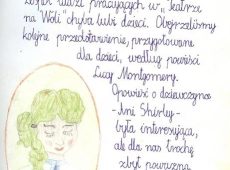 Zespół ludzi pracujących w „Teatrze
na Woli" chyba lubi dzieci. Obejrzeliśmy
kolejne przedstawienie, przygotowane
dla dzieci, według powieści
Lucy Montgomery.
Opowieść o dziewczynce
- Ani Shirley -
była interesująca,
ale dla nas trochę
zbyt poważna.